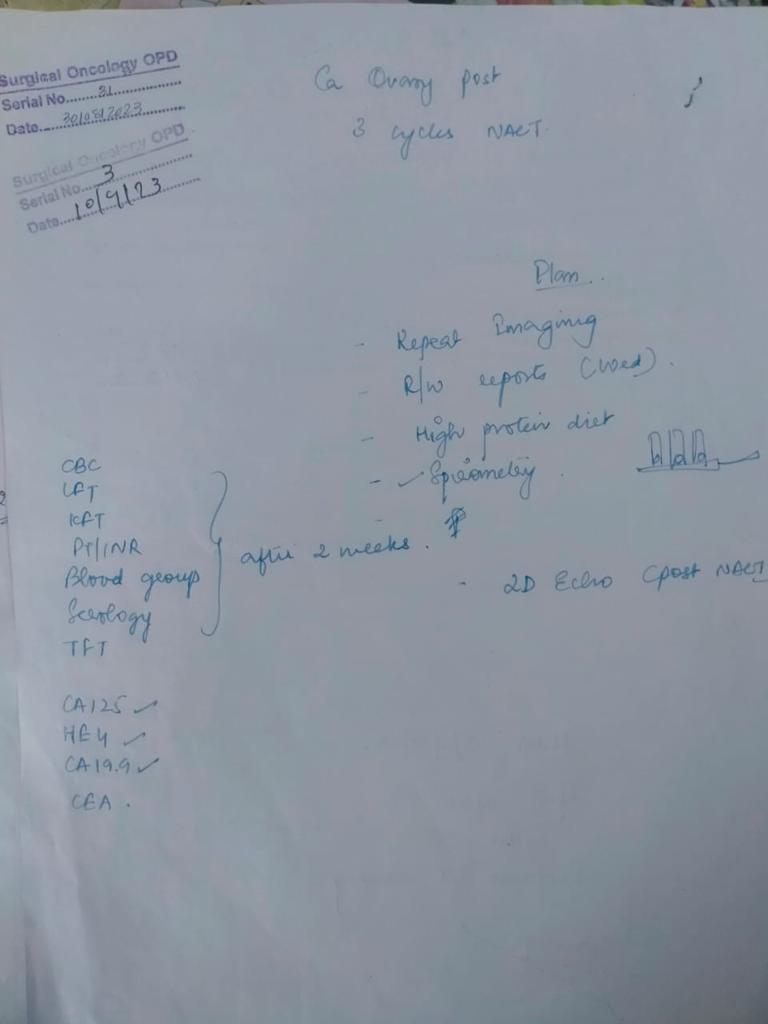 Surgical Oncology OPD
Serial No. 31
Date. 30/08/2023
Surgical Oncology OPD
Serial No. 3
Date. 10/9/23
Ca Ovary post
3 cycles NACT.
Plan
- Repeat Imaging
- R/w reports (Wed).
- High protein diet
- ✓ Spirometry.
- 2D Echo (post NACT
CBC
LFT
KFT
PT/INR
Blood group
Serology
TFT
after 2 weeks.
CA125 ✓
HE4 ✓
CA19.9 ✓
CEA.